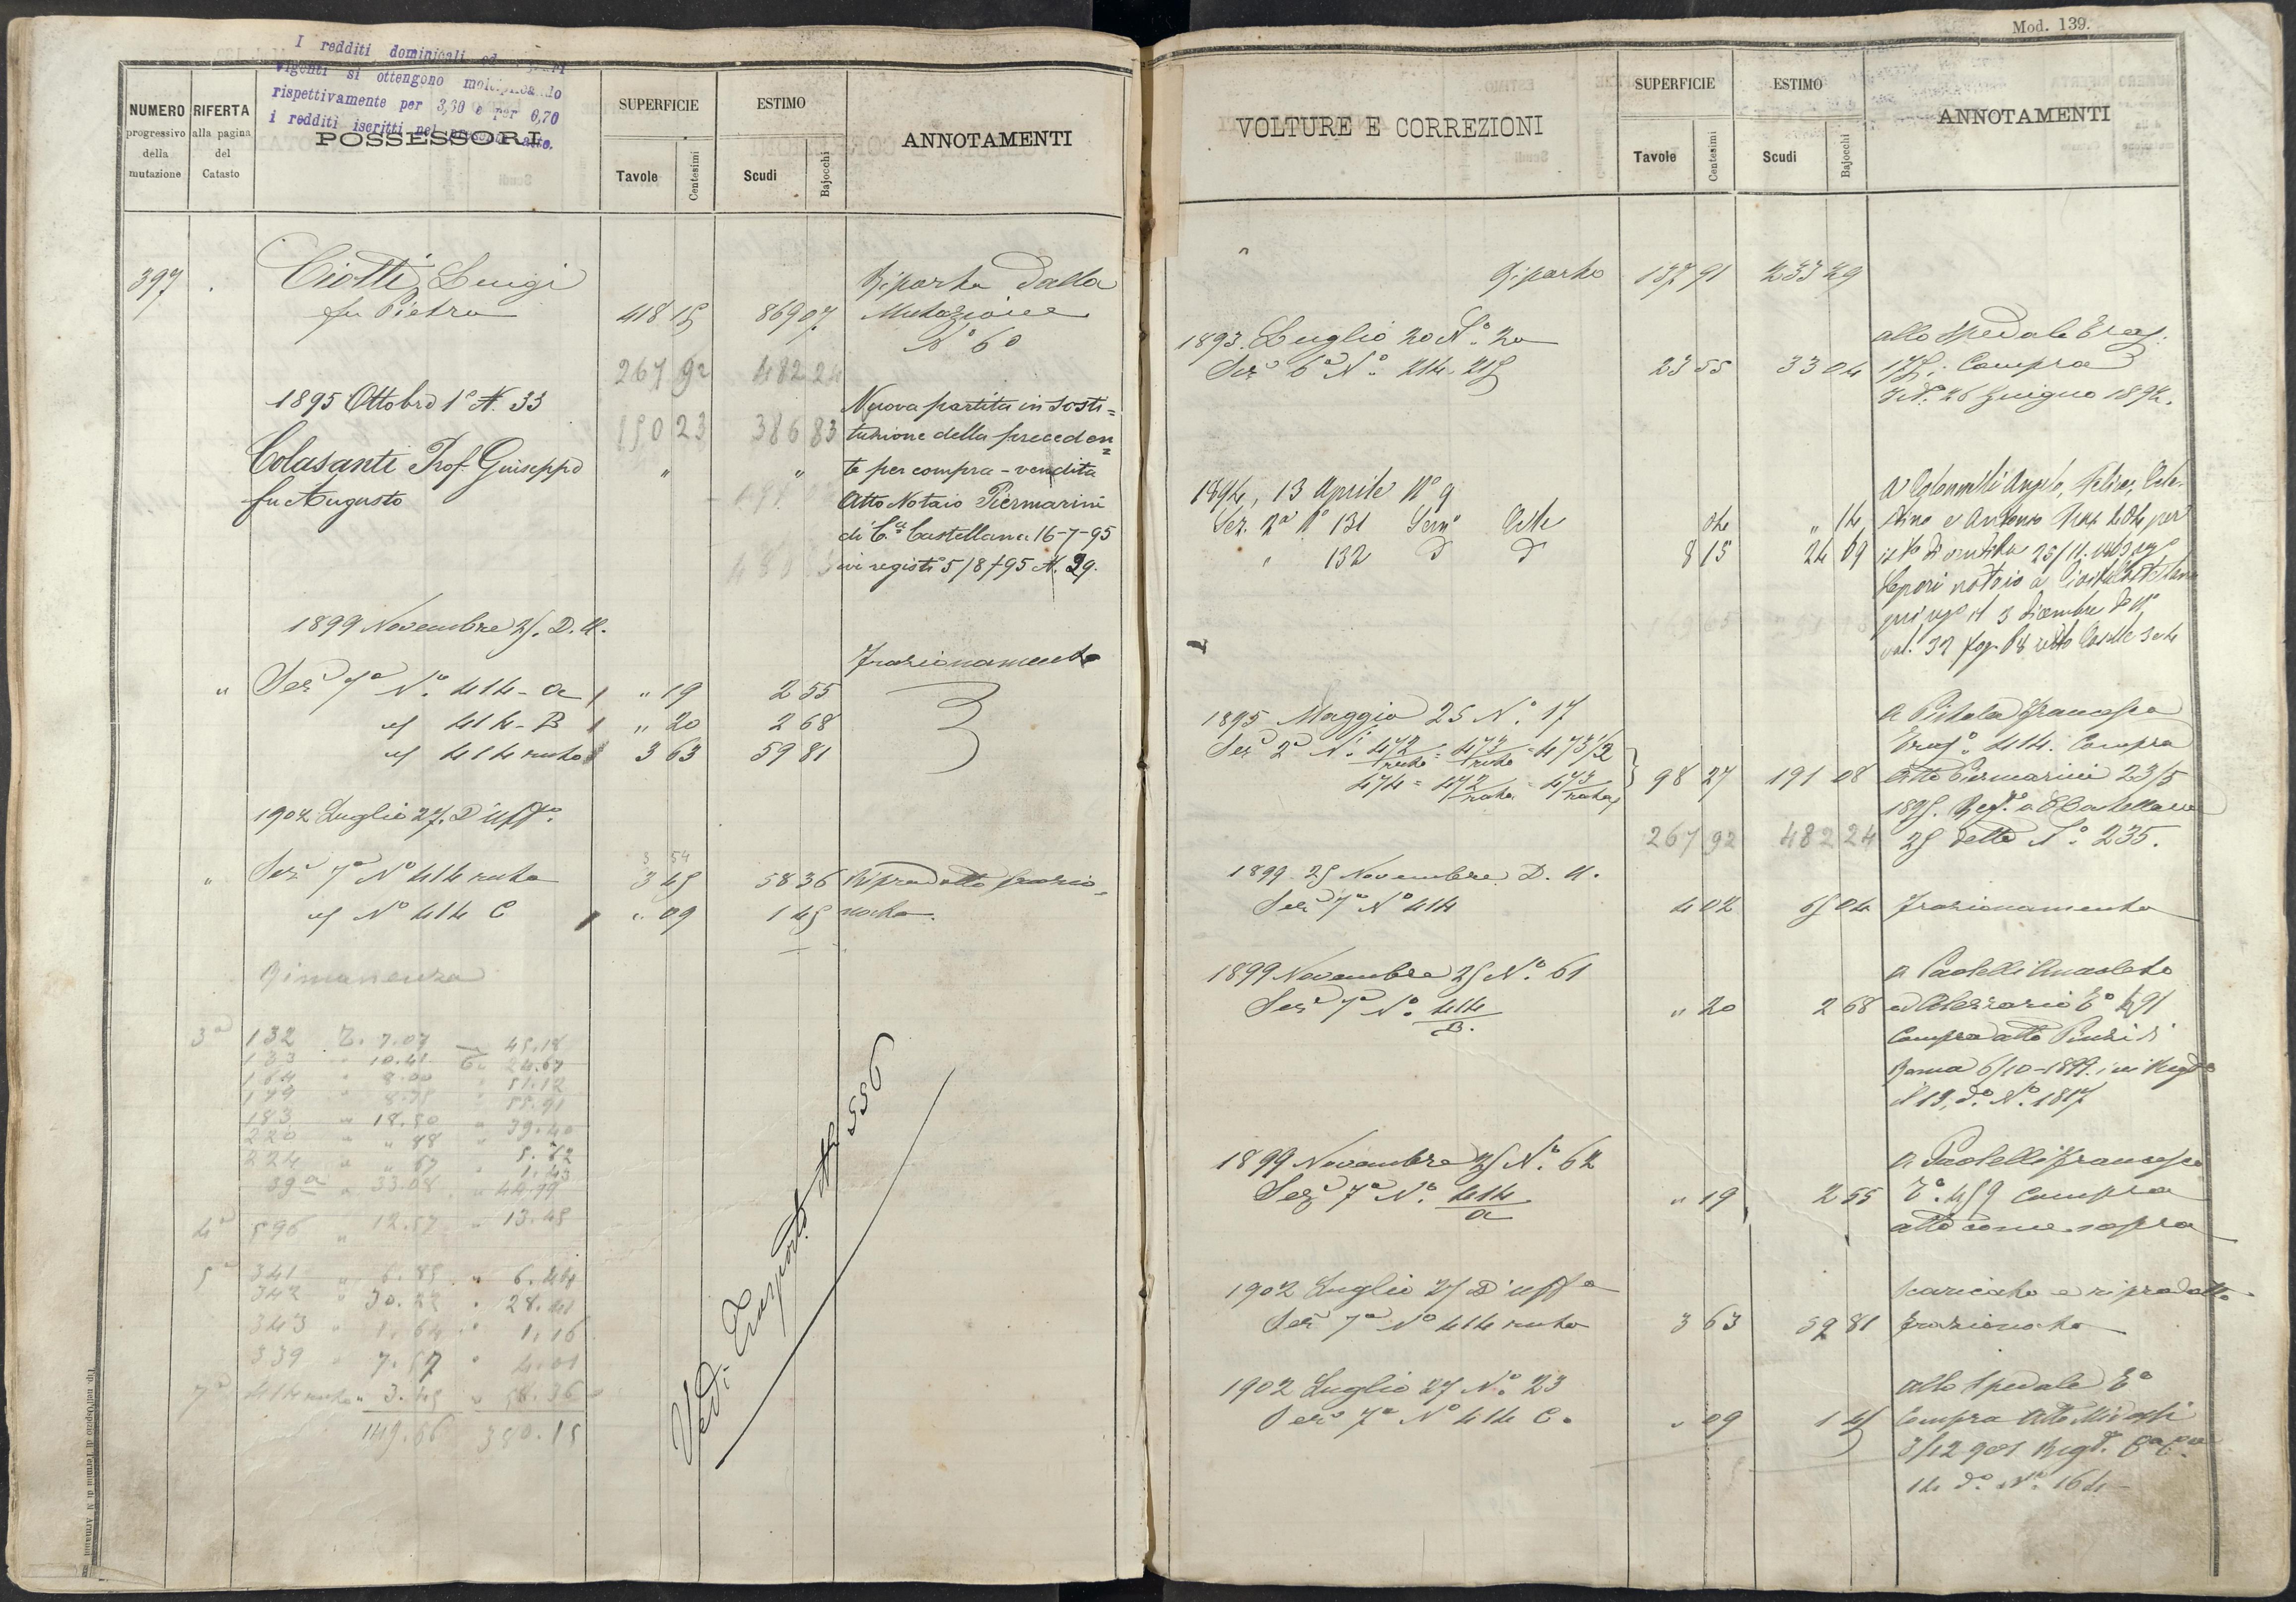 I redditi dominicali ed
vigenti si ottengono
rispettivamente per 3,30 e per 0,70
i redditi iscritti nel presente atto.
NUMERO progressivo della mutazione
RIFERTA alla pagina del Catasto
POSSESSORI
SUPERFICIE
Tavole Centesimi
ESTIMO
Scudi Bajocchi
ANNOTAMENTI
397
Ciotti Luigi
fu Pietro 418 15 869 07
Riporto dalla
Mutazione
N° 60
267 92 482 24
1895 Ottobre 1° N. 33
150 23 386 83
Colasanti Prof. Giuseppe " "
fu Augusto
Nuova partita in sosti=
tuzione della preceden=
te per compra-vendita
Atto Notaio Piermarini
di C.a Castellana 16-7-95
ivi registo 5/8/95 N. 39.
1899 Novembre 25. D. U.
Frazionamento
" Sez 7a N° 414-a " 19 2 55
" 414-B " 20 2 68
" 414 resto 3 63 59 81
1902 Luglio 27. D'uff°
3 54
" Sez 7a N° 414 resto 3 45 58 36 Riprodotto frazio=
" N° 414 C " 09 1 45 nato.
Rimanenza
3a 132 T. 7.07 45.18
133 " 10.41 24.67
164 " 8.00 " 51.12
179 " 8.75 " 55.91
183 " 18.50 " 39.40
220 " " 88 " 5.62
224 " " 67 " 1.43
39a " 33.08 " 44.99
4a 596 " 12.57 " 13.45
5a 341 " 6.85 " 6.44
342 " 30.22 " 28.41
343 " 1.64 " 1.16
339 " 7.57 " 4.01
7a 414 resto " 3.45 " 58.36
149.66 380.15
Vedi Trasporto N° 556
Tip. nell'Ospizio di Termini di N. Armanni
Mod. 139.
VOLTURE E CORREZIONI
SUPERFICIE
Tavole Centesimi
ESTIMO
Scudi Bajocchi
ANNOTAMENTI
Riporto 137 91 233 29
1893. Luglio 20 N° 20
Sez 6a N° 214. 215 23 55 33 04
allo Spedale
175. Compra
26 Giugno 1892.
1894, 13 Aprile N° 9
Sez. 2a N° 131 04 " 14
" 132 8 15 24 09
A Colonnelli Angelo,
e Antonio
atto di vendita 25/11
notaio a Civita Castellana
il 3 dicembre
vol. 32
1895 Maggio 25 N° 17
Sez 2a N. 472/resto = 473/resto = 473/2
474 = 472/resto = 473/resto 98 27 191 08
267 92 482 24
a Pitala Francesco
414. Compra
Atto Piermarini 23/5
1895. Reg.to a C Castellana
25 detto N° 235.
1899. 25 Novembre D. U.
Sez 7a N° 414 4 02 65 04 Frazionamento
1899 Novembre 25 N° 61
Sez 7a N° 414/B. " 20 2 68
a Paolelli Anacleto
T° 491
Compra atto
Roma 6/10-1899. ivi Regto
il 19. d° N° 1817
1899 Novembre 25 N° 62
Sez 7a N° 414/a " 19 2 55
a Paolelli Francesco
T° 459 Compra
atto come sopra
1902 Luglio 27 D'uff°
Sez 7a N° 414 resto 3 63 59 81
Scaricato e riprodotto
frazionato
1902 Luglio 27 N° 23
Sez 7a N° 414 C. " 09 1 45
allo Spedale T°
Compra Atto
3/12 901 Regt.
14 d° N° 164